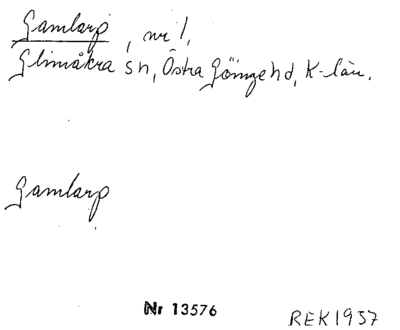 Gamlarp, nr 1,
Glimåkra sn, Östra Göinge hd, K-län.
Gamlarp
Nr 13576
REK1937